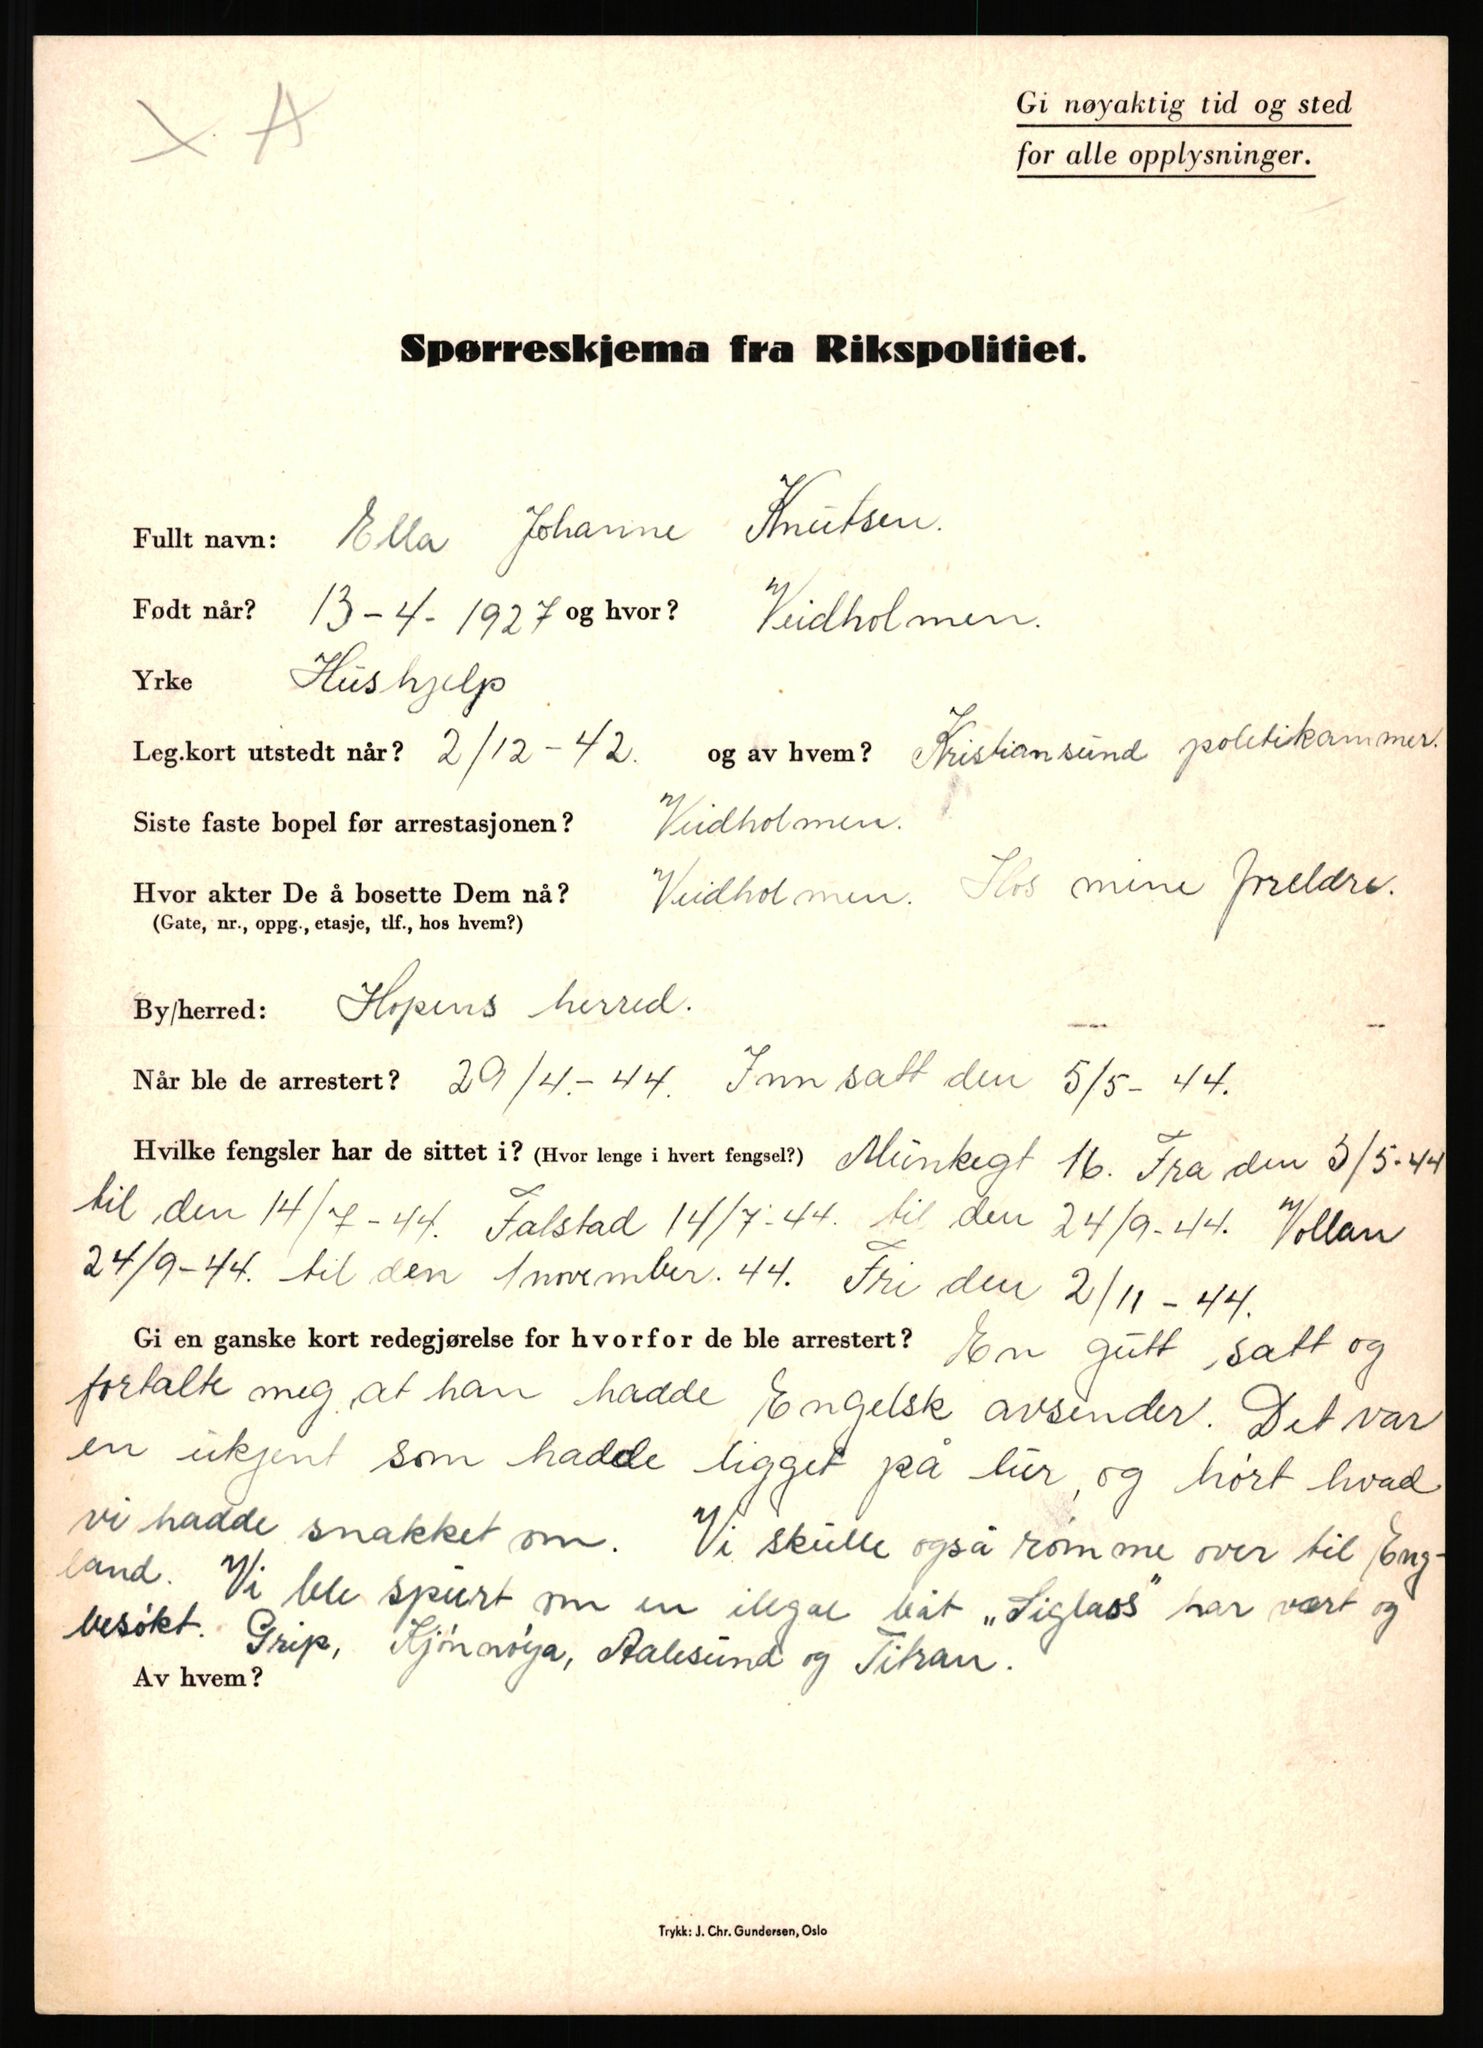 X A
Gi nøyaktig tid og sted
for alle opplysninger.
Spørreskjema fra Rikspolitiet.
Fullt navn: Ella Johanne Knutsen.
Født når? 13-4-1927 og hvor? Veidholmen.
Yrke Hushjelp
Leg.kort utstedt når? 2/12-42. og av hvem? Kristiansund politikammer.
Siste faste bopel før arrestasjonen? Veidholmen.
Hvor akter De å bosette Dem nå? Veidholmen. Hos mine foreldre.
(Gate, nr., oppg., etasje, tlf., hos hvem?)
By/herred: Hopens herred.
Når ble de arrestert? 29/4.-44. Innsatt den 5/5-44.
Hvilke fengsler har de sittet i? (Hvor lenge i hvert fengsel?) Munkegt 16. Fra den 5/5-44
til den 14/7-44. Falstad 14/7-44. til den 24/9-44. Vollan
24/9-44. til den 1 november. 44. Fri den 2/11-44.
Gi en ganske kort redegjørelse for hvorfor de ble arrestert? En gutt satt og
fortalte meg at han hadde Engelsk avsender. Det var
en ukjent som hadde ligget på lur, og hørt hvad
vi hadde snakket om. Vi skulle også rømme over til Eng-
land. Vi ble spurt om en ilegal båt „Siglaos" har vært og
besøkt. Grip, Kjönnöya, Aalesund og Titran.
Av hvem?
Trykk: J. Chr. Gundersen, Oslo